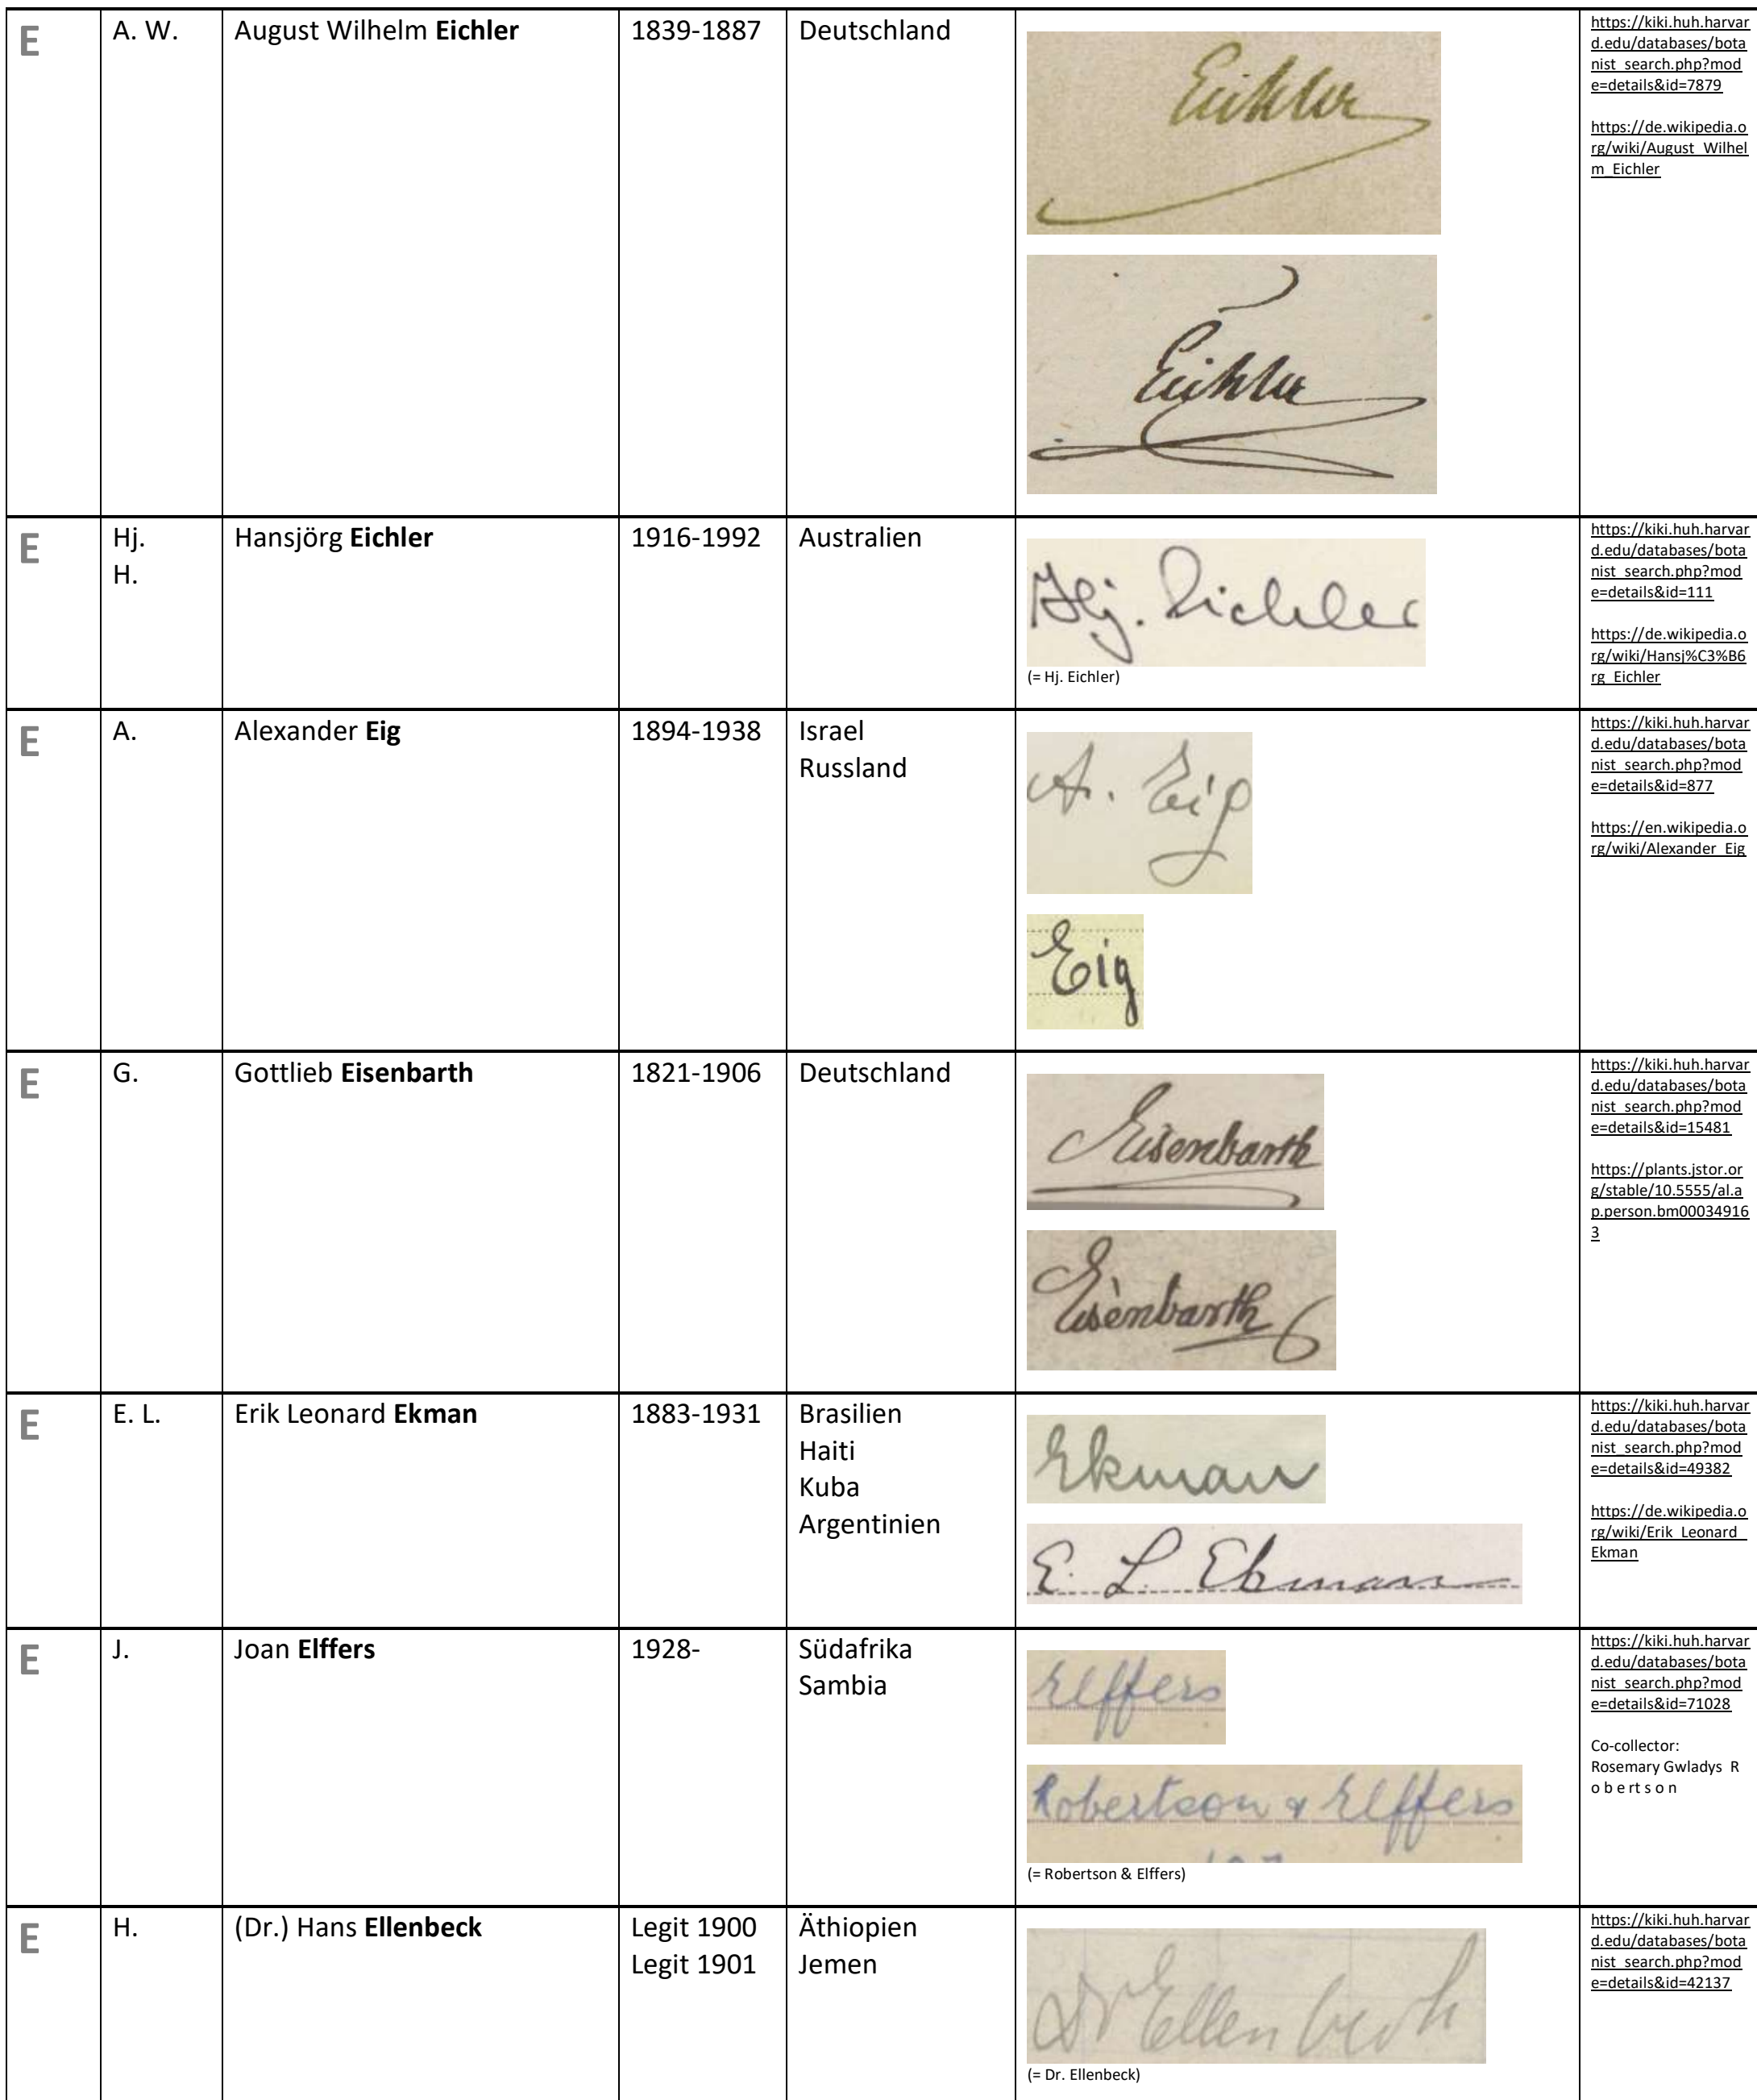 E
A. W.
August Wilhelm Eichler
1839-1887
Deutschland
Eichler
Eichler
https://kiki.huh.harvar
d.edu/databases/bota
nist_search.php?mod
e=details&id=7879
https://de.wikipedia.o
rg/wiki/August_Wilhel
m_Eichler
E
Hj.
H.
Hansjörg Eichler
1916-1992
Australien
Hj. Eichler
(= Hj. Eichler)
https://kiki.huh.harvar
d.edu/databases/bota
nist_search.php?mod
e=details&id=111
https://de.wikipedia.o
rg/wiki/Hansj%C3%B6
rg_Eichler
E
A.
Alexander Eig
1894-1938
Israel
Russland
A. Eig
Eig
https://kiki.huh.harvar
d.edu/databases/bota
nist_search.php?mod
e=details&id=877
https://en.wikipedia.o
rg/wiki/Alexander_Eig
E
G.
Gottlieb Eisenbarth
1821-1906
Deutschland
Eisenbarth
Eisenbarth
https://kiki.huh.harvar
d.edu/databases/bota
nist_search.php?mod
e=details&id=15481
https://plants.jstor.or
g/stable/10.5555/al.a
p.person.bm00034916
3
E
E. L.
Erik Leonard Ekman
1883-1931
Brasilien
Haiti
Kuba
Argentinien
Ekman
E. L. Ekman
https://kiki.huh.harvar
d.edu/databases/bota
nist_search.php?mod
e=details&id=49382
https://de.wikipedia.o
rg/wiki/Erik_Leonard_
Ekman
E
J.
Joan Elffers
1928-
Südafrika
Sambia
Elffers
Robertson & Elffers
(= Robertson & Elffers)
https://kiki.huh.harvar
d.edu/databases/bota
nist_search.php?mod
e=details&id=71028
Co-collector:
Rosemary Gwladys R
o b e r t s o n
E
H.
(Dr.) Hans Ellenbeck
Legit 1900
Legit 1901
Äthiopien
Jemen
Dr Ellenbeck
(= Dr. Ellenbeck)
https://kiki.huh.harvar
d.edu/databases/bota
nist_search.php?mod
e=details&id=42137